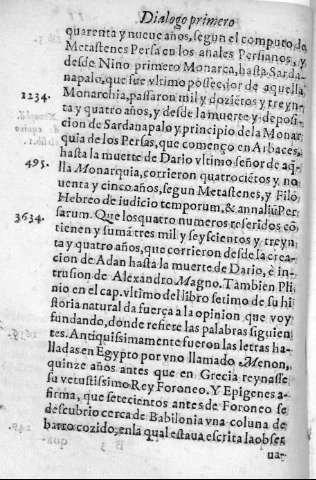 Dialogo primero
quarenta y nueue años, segun el computo de
Metastenes Persa en los anales Persianos, y
desde Nino primero Monarca, hasta Sarda-
napalo, que fue vltimo posseedor de aquella
1234. Monarchia, passaron mil y dozietos y treyn-
ta y quatro años, y desde la muerte y deposi-
cion de Sardanapalo, y principio de la Monar
quia de los Persas, que començo en Arbaces,
hasta la muerte de Dario vltimo señor de aq̃-
495. lla Monarquia, corrieron quatrociẽtos y no
uenta y cinco años, segun Metastenes, y Filõ
Hebreo de iudicio temporum, & annaliũ Per
3634. sarum. Que los quatro numeros referidos cõ
tienen y sumã tres mil y seyscientos y treyn
ta y quatro años, que corrieron desde la crea-
cion de Adan hasta la muerte de Dario, è in-
trusion de Alexandro Magno. Tambien Pli
nio en el cap. vltimo del libro setimo de su hi
storia natural da fuerça a la opinion que voy
fundando, donde refiere las palabras siguien
tes. Antiquissimamente fueron las letras ha-
lladas en Egypto por vno llamado Menon,
quinze años antes que en Grecia reynasse
su vetustissimo Rey Foroneo. Y Epigenes a-
firma, que setecientos antes de Foroneo se
descubrio cerca de Babilonia vna coluna de
barro cozido, en la qual estaua escrita la obser
ua-